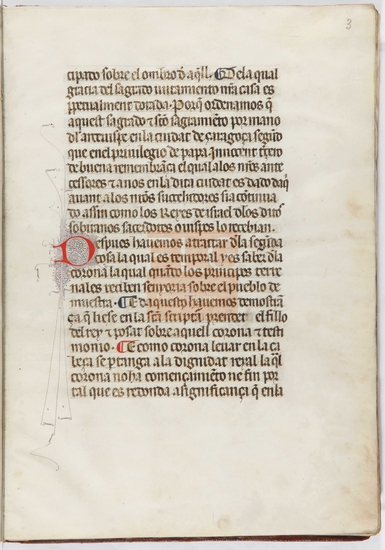 3
cipado sobre el ombro đ aq̃ll. ¶ Dela qual
gracia del sagrado vntamiento nr̃a casa es
sp̃ualment dotada. Porq̃ ordenamos q̃
aquest sagrado & sc̃o sagramẽto por mano
dl arceuispe en la ciudat de çaragoça segũd
que en el priuilegio de papa jnnocent
de buena remembrãça el qual a los nr̃os ante
cessores & a nos en la dita ciudat es dado daq̃
auant a los nr̃os succehidores sia
do assin como los Reyes de israel dlos
sobiranos sacerdotes o uispes lo recebian.
Despues hauemos a tractar dla segũda
cosa la qual es temporal & es saber dla
corona la qual quãdo los principes terre
nales reciben senyoria sobre el pueblo de
muestra. ¶ E daquesto hauemos demostrã
ça q̃ hi ese en la sc̃a sc̃ptũra prender el fillo
del rey & posar sobre aquell corona & testi
monio. ¶ E como corona leuar en la ca
beça se p̃tanga a la dignidat reyal la q̃l
corona no ha començamiẽto ne fin por
tal que es redonda a significança q̃ en la